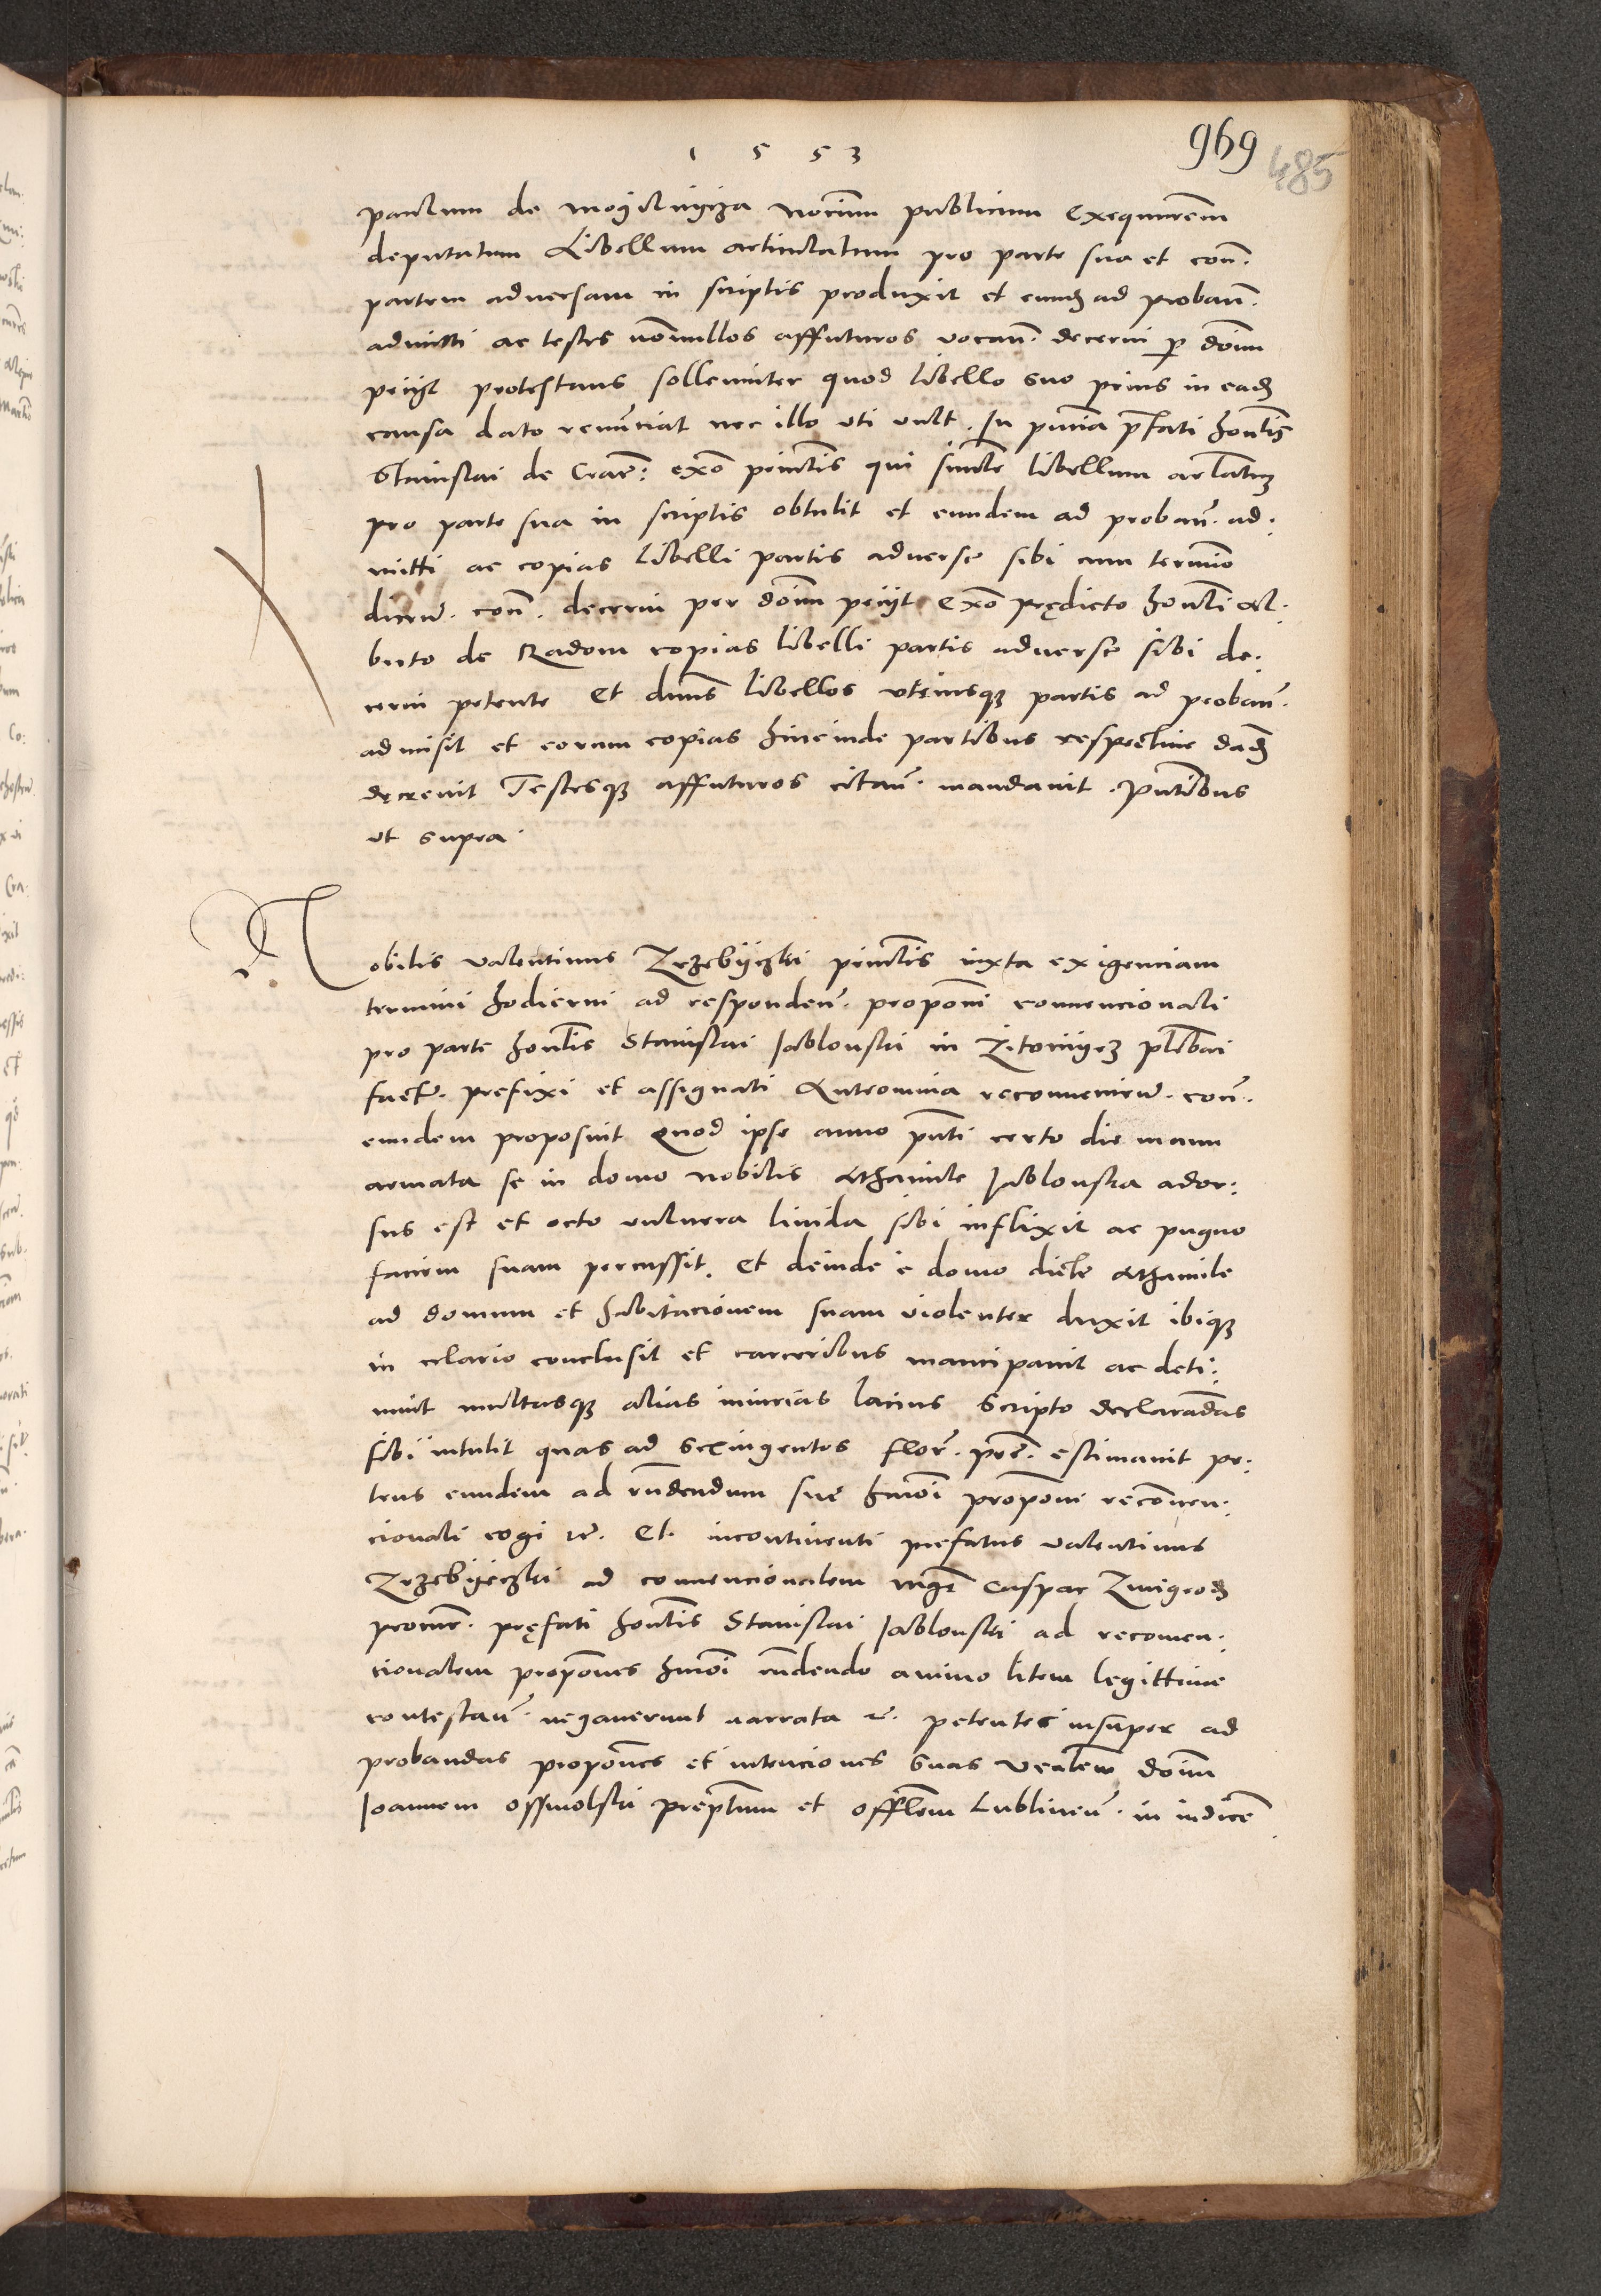 1553
969
485
paulum de mogilnijcza notarium publicum Exequutorem
deputatum Libellum articulatum pro parte sua et con͞.
partem adversam in scriptis produxit et eundem ad proban͞.
admitti ac testes nonnullos affuturos vocan͞. decerni per dominum
petijt protestans sollenniter quod libello suo prius in eadem
causa dato renunciat nec illo uti vult. In presencia prefati honorabilis
Stanislai de Crac͞: exo principalis qui similiter libellum articulatum
pro parte sua in scriptis obtulit et eundem ad proban͞. ad:
mitti ac copias libelli partis adverse sibi cum termino
dicen͞. con͞. decerni per dominum petijt Exo prędicto honorabili Al:
berto de Radom copias libelli partis adverse sibi de:
cerni petente Et dominus libellos utriusque partis ad proban͞.
admisit et eorum copias hincinde partibus respective dandas
dęcrevit Testesque affuturos citan͞. mandavit. Presentibus
ut supra.
Nobilis valentinus Zrzebijczki principalis iuxta exigenciam
termini hodierni ad responden͞. proposicioni convencionali
pro parte honorabilis Stanislai Jablonski in plebani
fact͞. prefixi et assignati Anteomnia reconveniend͞. con͞.
eundem proposuit Quod ipse anno presenti certo die manu
armata se in domo nobilis Jablonska ador:
sus est et octo vulnera livida sibi inflixit ac pugno
faciem suam percussit. Et deinde e domo dicte
ad domum et habitacionem suam violenter duxit ibique
in celario conclusit et carceribus mancipavit ac deti:
nuit multasque alias iniurias lacius scripto declarandas
sibi intulit quas ad sexingentos flor͞. pec͞. estimavit pe:
tens eundem ad respondendum sue huiusmodi proposicioni reconven:
cionali cogi etc. Et incontinenti prefatus valentinus
Zrzebijeczki ad convencionalem Caspar Zmigrod
procur͞. pręfati honorabilis Stanislai Jablonski ad reconven:
cionalem proposiciones huiusmodi respondendo animo litem legittime
contestan͞. negaverunt narrata etc. petentes insuper ad
probandas proposiciones et intenciones suas venerabilem dominum
Joannem ossmolski prepositum et officialem Lublinen͞. in iudicem